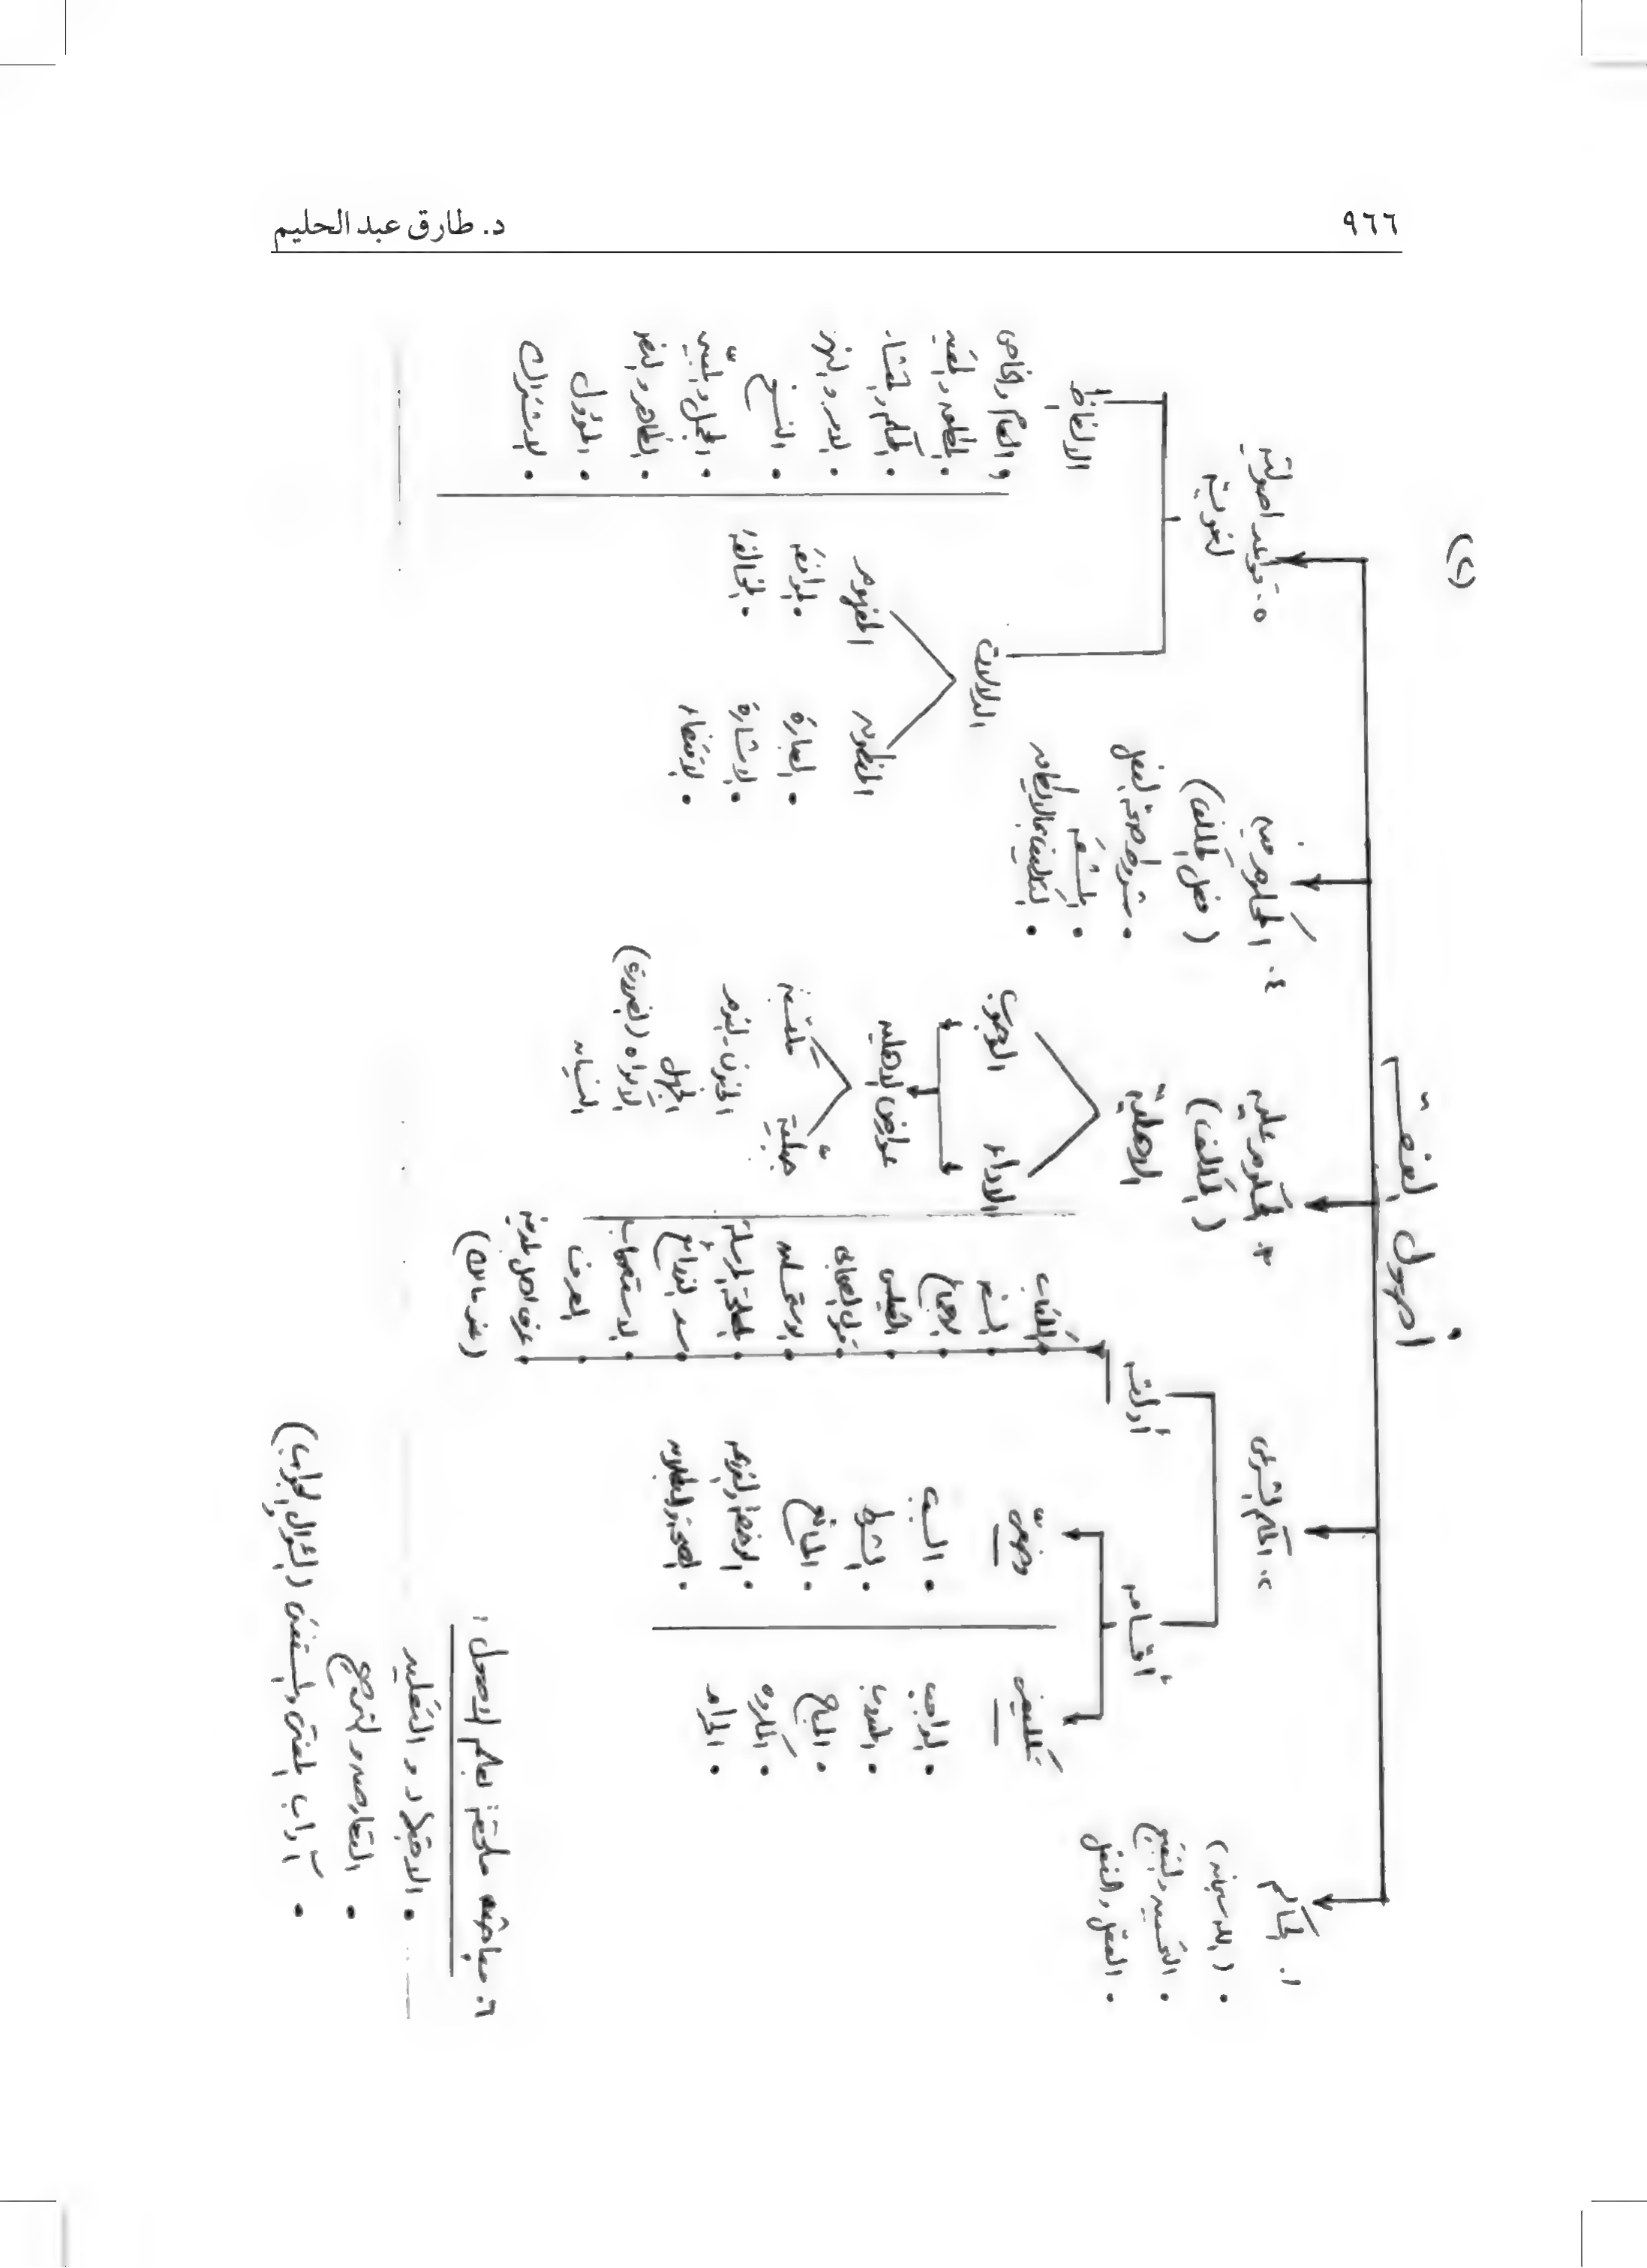 ٩٦٦
د. طارق عبد الحليم
(٢)
أصول الفقه
١. الحاكم
(الله سبحانه)
التحسين والتقبيح
العقل والنقل
٢. الحكم الشرعي
أقسامه
تكليفي
الواجب
المندوب
المباح
المكروه
الحرام
وضعي
السبب
الشرط
المانع
الرخصة والعزيمة
الصحة والبطلان
أدلته
الكتاب
السنة
الإجماع
القياس
قول الصحابي
الاستحسان
المصلحة المرسلة
سد الذرائع
الاستصحاب
العرف
٣. المحكوم عليه
(المكلف)
الأهلية
الأداء
الوجوب
عوارض الأهلية
جبلية
مكتسبة
الجنون - النوم
الجهل
الإكراه (الضرورة)
النسيان
٤. المحكوم فيه
(فعل المكلف)
شروط صحة الفعل
المشقة
٥. قواعد أصولية
لغوية
الدلالات
المنطوق
العبارة
الإشارة
الاقتضاء
المفهوم
الموافقة
المخالفة
الألفاظ
العام والخاص
المطلق والمقيد
المحكم والمتشابه
الأمر والنهي
النسخ
المجمل والمبين
الظاهر والنص
المؤول
الاشتراك
٦. مباحث ملحقة بعلم الأصول:
الاجتهاد والتقليد
التعارض والترجيح
آداب المفتي والمستفتي (السؤال والجواب)